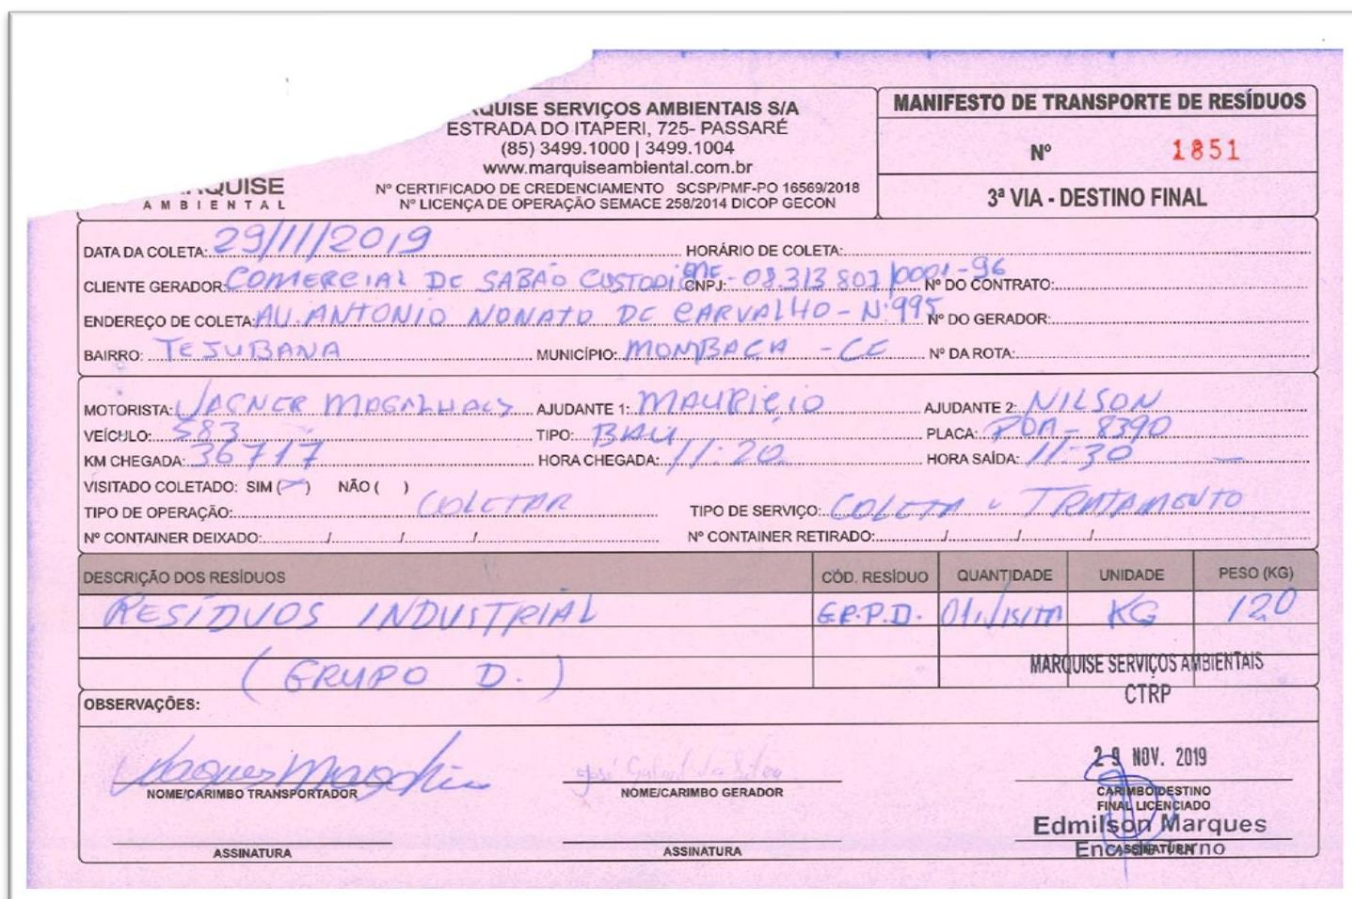 MARQUISE SERVIÇOS AMBIENTAIS S/A
ESTRADA DO ITAPERI, 725- PASSARÉ
(85) 3499.1000 | 3499.1004
www.marquiseambiental.com.br
Nº CERTIFICADO DE CREDENCIAMENTO SCSP/PMF-PO 16569/2018
Nº LICENÇA DE OPERAÇÃO SEMACE 258/2014 DICOP GECON
MARQUISE
AMBIENTAL
MANIFESTO DE TRANSPORTE DE RESÍDUOS
Nº 1851
3ª VIA - DESTINO FINAL
DATA DA COLETA: 29/11/2019 HORÁRIO DE COLETA:
CLIENTE GERADOR: COMERCIAL DE SABÃO CUSTODIO CNPJ: - 08.313 803/0001-96 Nº DO CONTRATO:
ENDEREÇO DE COLETA: AV. ANTONIO NONATO DE CARVALHO - Nº 995 Nº DO GERADOR:
BAIRRO: TEJUBANA MUNICÍPIO: MOMBAÇA - CE Nº DA ROTA:
MOTORISTA: VAGNER MAGALHAES AJUDANTE 1: MAURICIO AJUDANTE 2: NILSON
VEÍCULO: 583 TIPO: BAU PLACA: POA-8390
KM CHEGADA: 36717 HORA CHEGADA: 11:20 HORA SAÍDA: 11:30
VISITADO COLETADO: SIM ( ) NÃO ( )
TIPO DE OPERAÇÃO: COLETAR TIPO DE SERVIÇO: COLETA e TRATAMENTO
Nº CONTAINER DEIXADO: / / / Nº CONTAINER RETIRADO: / / /
DESCRIÇÃO DOS RESÍDUOS CÓD. RESÍDUO QUANTIDADE UNIDADE PESO (KG)
RESÍDUOS INDUSTRIAL G.R.P.D. KG 120
(GRUPO D.)
MARQUISE SERVIÇOS AMBIENTAIS
CTRP
OBSERVAÇÕES:
29 NOV. 2019
NOME/CARIMBO TRANSPORTADOR NOME/CARIMBO GERADOR CARIMBO DESTINO
FINAL LICENCIADO
Edmilson Marques
ASSINATURA ASSINATURA ASSINATURA